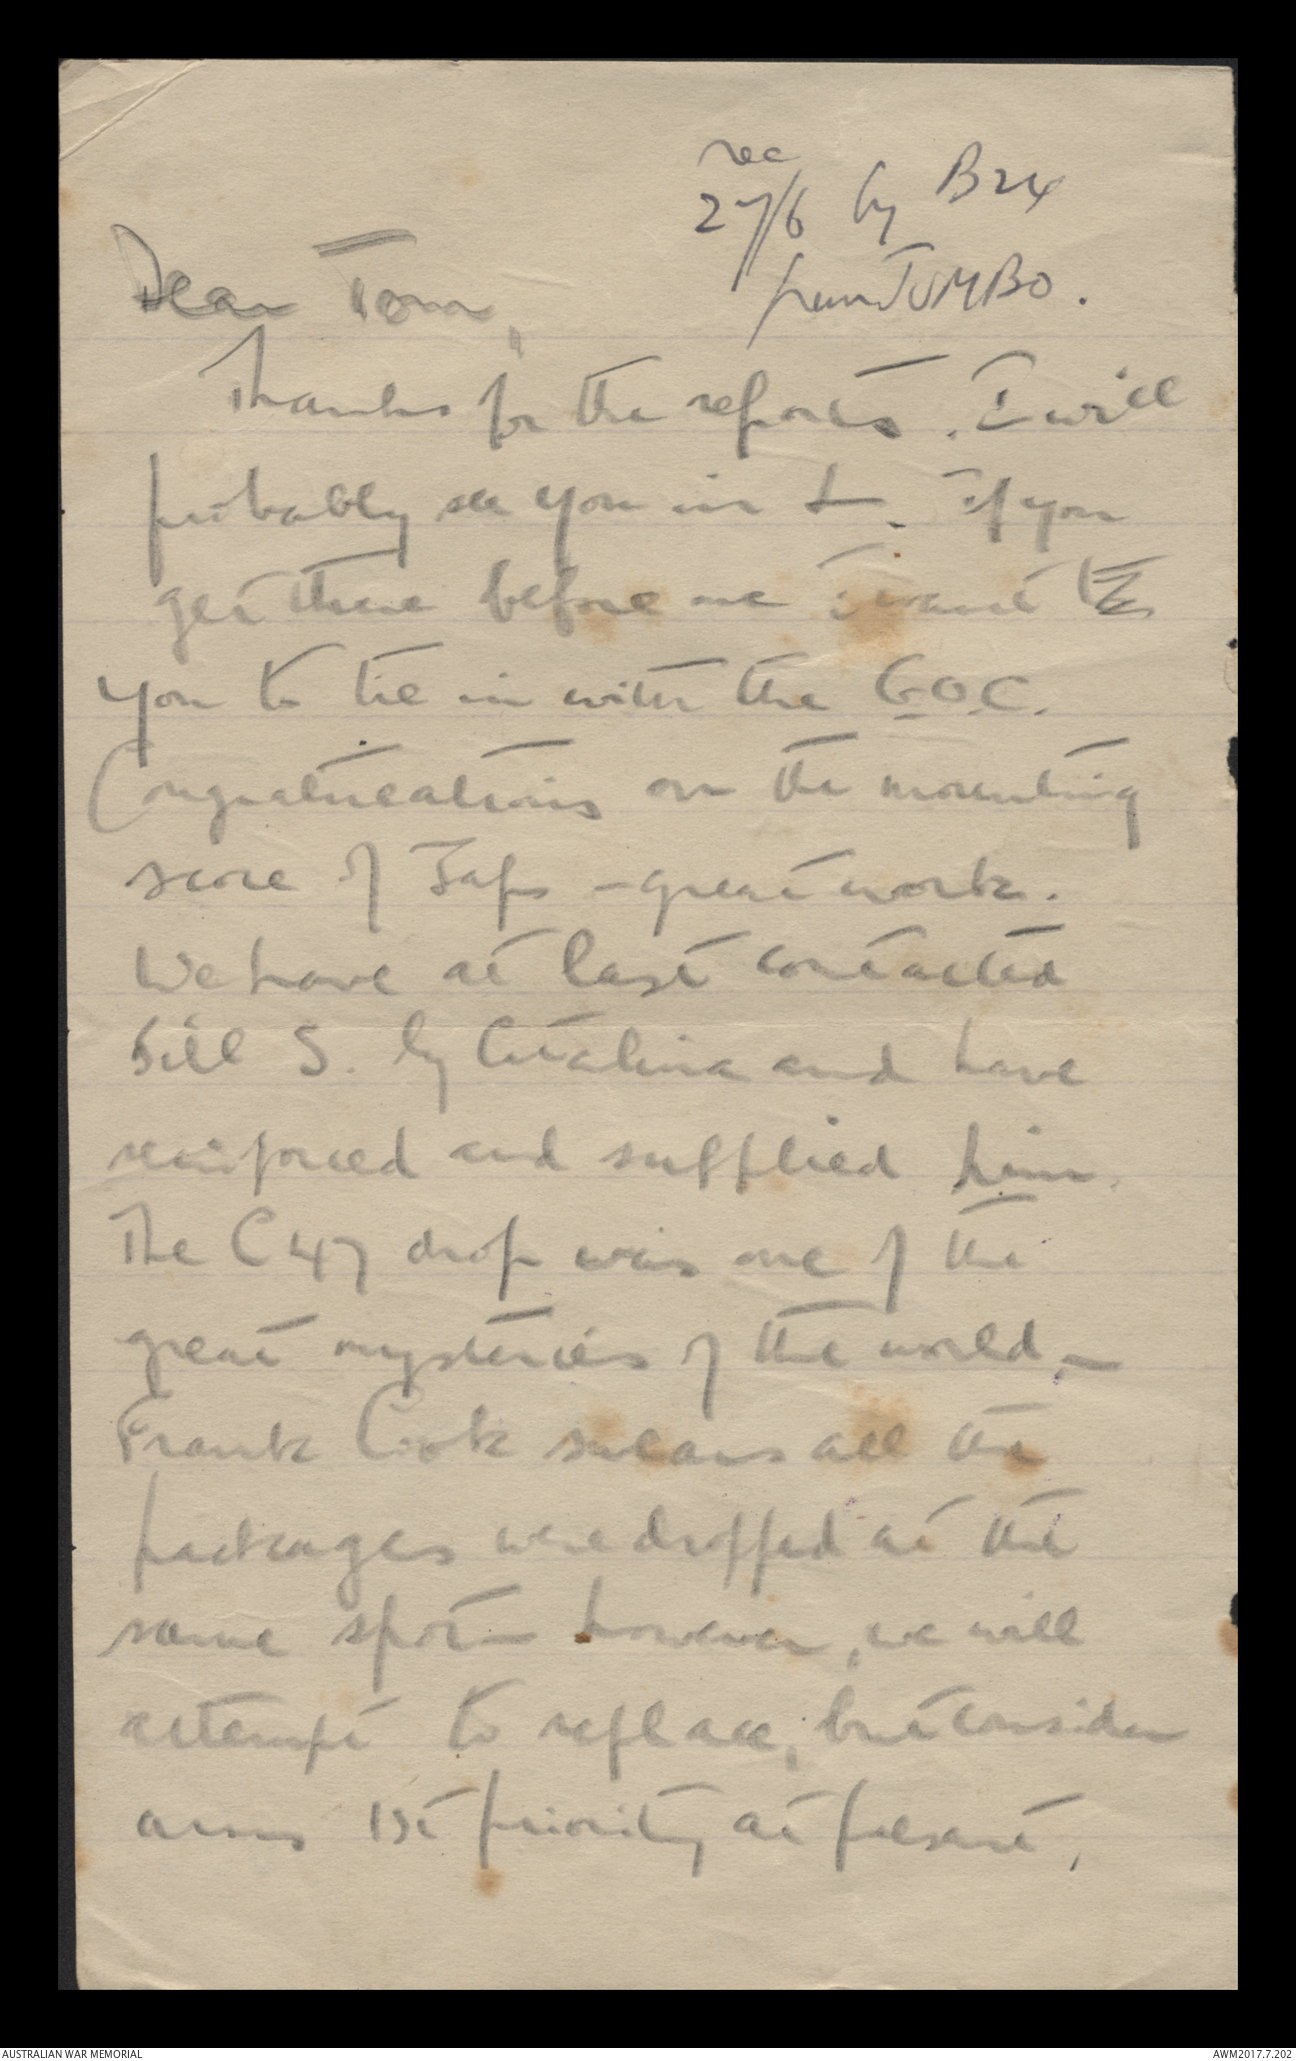 rec
27/6 by B24
from JUMBO.
Dear Tom,
Thanks for the reports. I will
probably see you in L. If you
get there before me I want
you to tie in with the G.O.C.
Congratulations on the mounting
score of Japs - great work.
We have at last contacted
Bill S. by Catalina and have
reinforced and supplied him.
The C47 drop was one of the
great mysteries of the world, -
Frank Cook swears all the
packages were dropped at the
same spot - however, we will
attempt to replace, but consider
arms 1st priority at present,
AUSTRALIAN WAR MEMORIAL
AWM2017.7.202